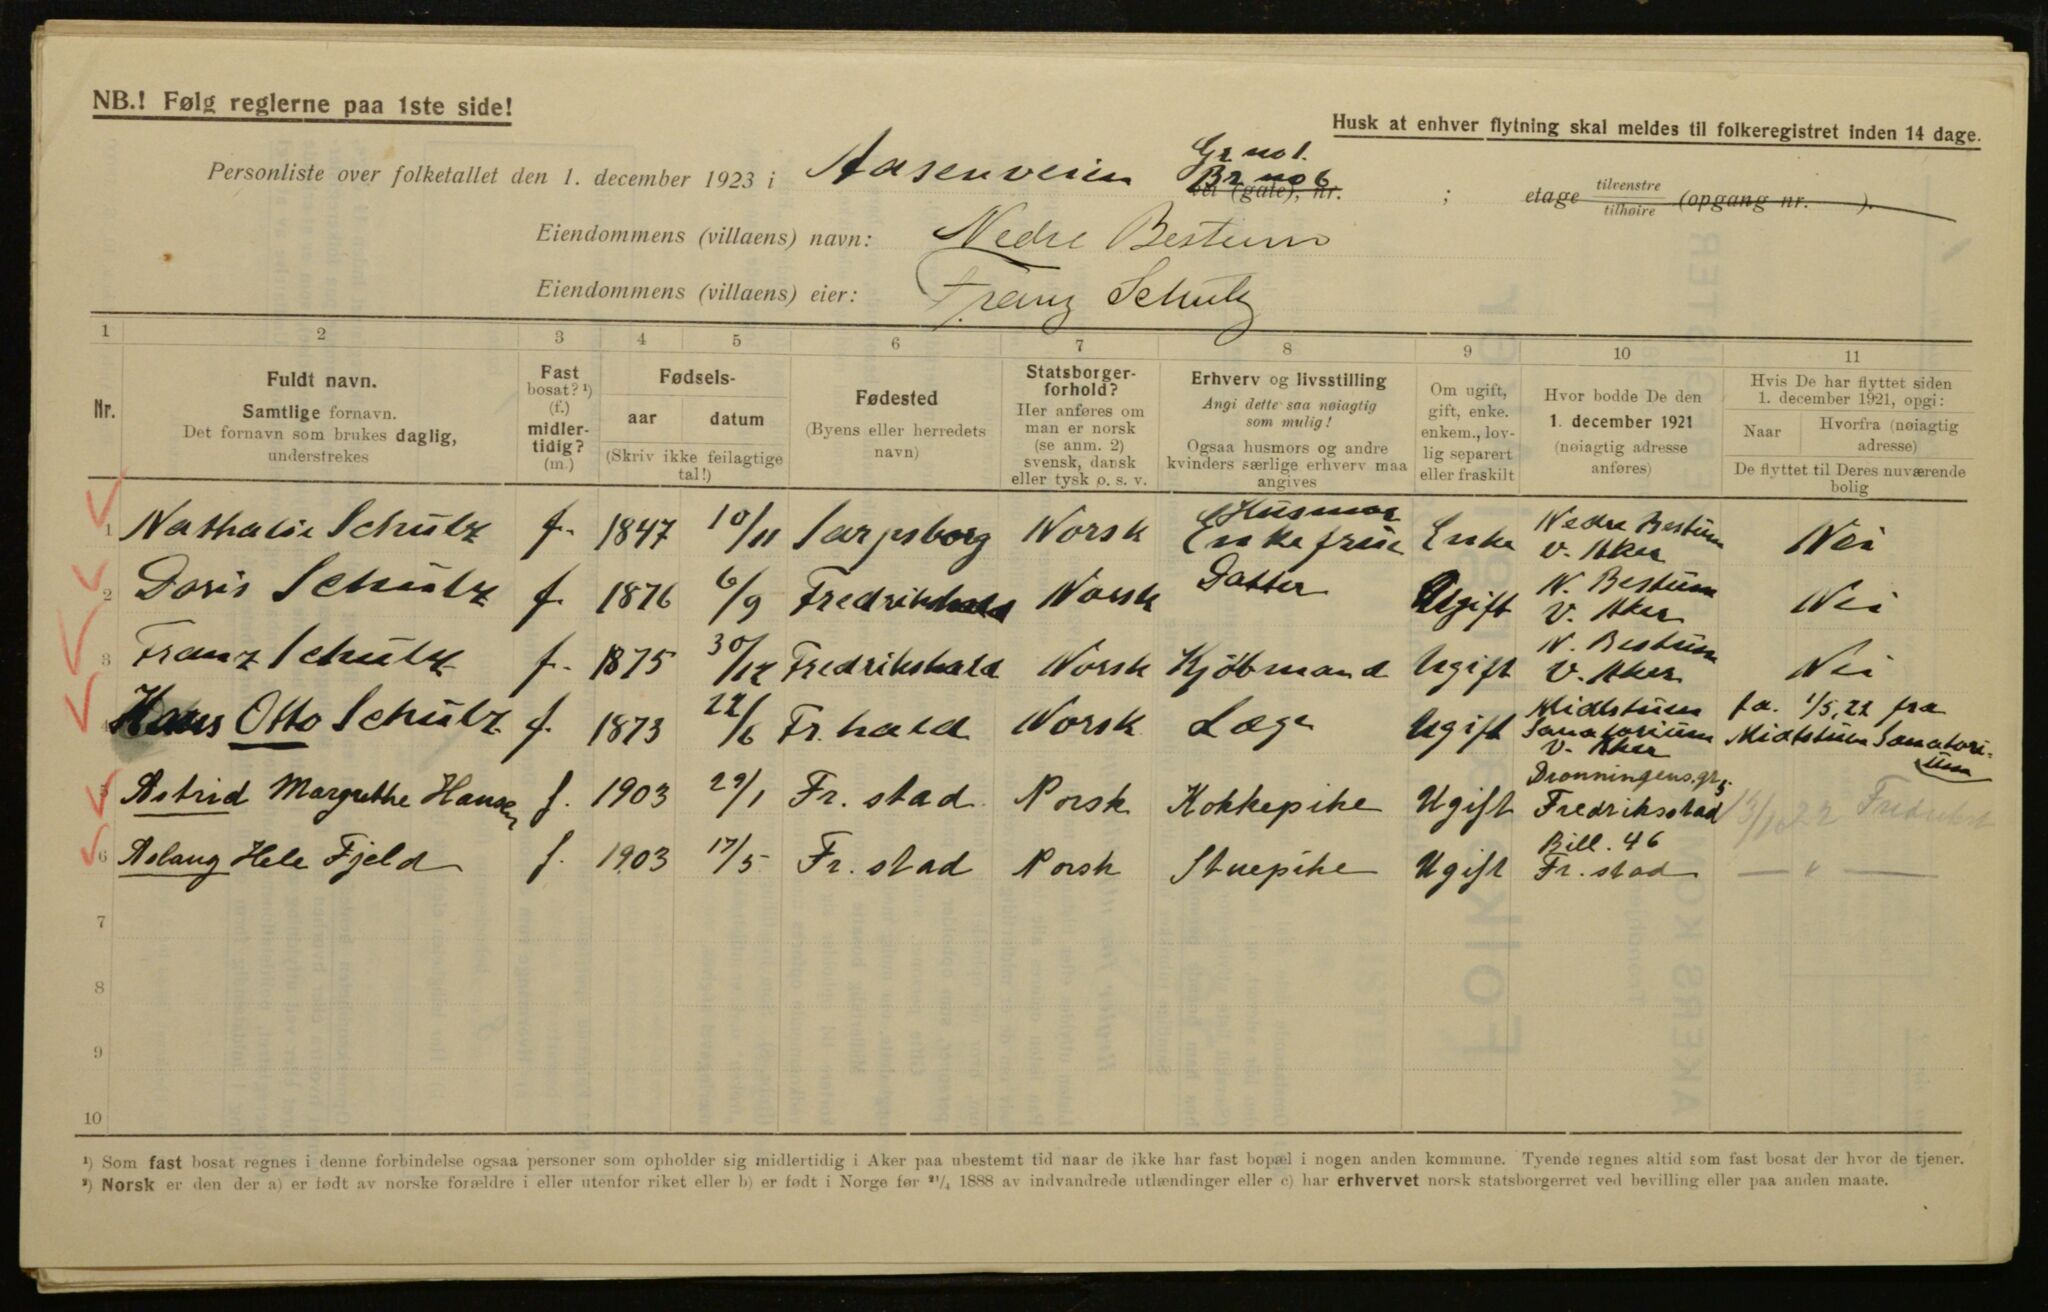 NB.! Følg reglerne paa 1ste side!
Husk at enhver flytning skal meldes til folkeregistret inden 14 dage.
Gr no 1.
Personliste over folketallet den 1. december 1923 i Aasenveien Br no 6 vei (gate), nr. ; etage tilvenstre tilhøire (opgang nr. ).
Eiendommens (villaens) navn: Nedre Bestum
Eiendommens (villaens) eier: Franz Schulz
1 2 3 4 5 6 7 8 9 10 11
Nr.
Fuldt navn.
Samtlige fornavn.
Det fornavn som brukes daglig,
understrekes
Fast
bosat? ¹)
(f.)
midler-
tidig?
(m.)
Fødsels-
aar datum
(Skriv ikke feilagtige
tal!)
Fødested
(Byens eller herredets
navn)
Statsborger-
forhold?
Her anføres om
man er norsk
(se anm. 2)
svensk, dansk
eller tysk o. s. v.
Erhverv og livsstilling
Angi dette saa nøiagtig
som mulig!
Ogsaa husmors og andre
kvinders særlige erhverv maa
angives
Om ugift,
gift, enke.
enkem., lov-
lig separert
eller fraskilt
Hvor bodde De den
1. december 1921
(nøiagtig adresse
anføres)
Hvis De har flyttet siden
1. december 1921, opgi:
Naar Hvorfra (nøiagtig
adresse)
De flyttet til Deres nuværende
bolig
1 Nathalie Schulz f. 1847 10/11 Sarpsborg Norsk Husmor Enkefrue Enke Nedre Bestum V. Aker Nei
2 Doris Schulz f. 1876 6/9 Fredrikshald Norsk Datter Ugift N. Bestum V. Aker Nei
3 Franz Schulz f. 1875 30/12 Fredrikshald Norsk Kjöbmand Ugift N. Bestum V. Aker Nei
4 Hans Otto Schulz f. 1873 22/6 Fr. hald Norsk Læge Ugift Midtstuen Sanatorium V. Aker fa. 1/5, 22 fra Midtstuen Sanatorium
5 Astrid Margrethe Hansen f. 1903 29/1 Fr. stad Norsk Kokkepike Ugift Dronningens.gt 5 Fredriksstad 13/10 22 Fredrikst
6 Aslaug Hele Fjeld f. 1903 17/5 Fr. stad Norsk Stuepike Ugift Bill. 46 Fr. stad — " —
7
8
9
10
¹) Som fast bosat regnes i denne forbindelse ogsaa personer som opholder sig midlertidig i Aker paa ubestemt tid naar de ikke har fast bopæl i nogen anden kommune. Tyende regnes altid som fast bosat der hvor de tjener.
²) Norsk er den der a) er født av norske forældre i eller utenfor riket eller b) er født i Norge før ²¹/₄ 1888 av indvandrede utlændinger eller c) har erhvervet norsk statsborgerret ved bevilling eller paa anden maate.